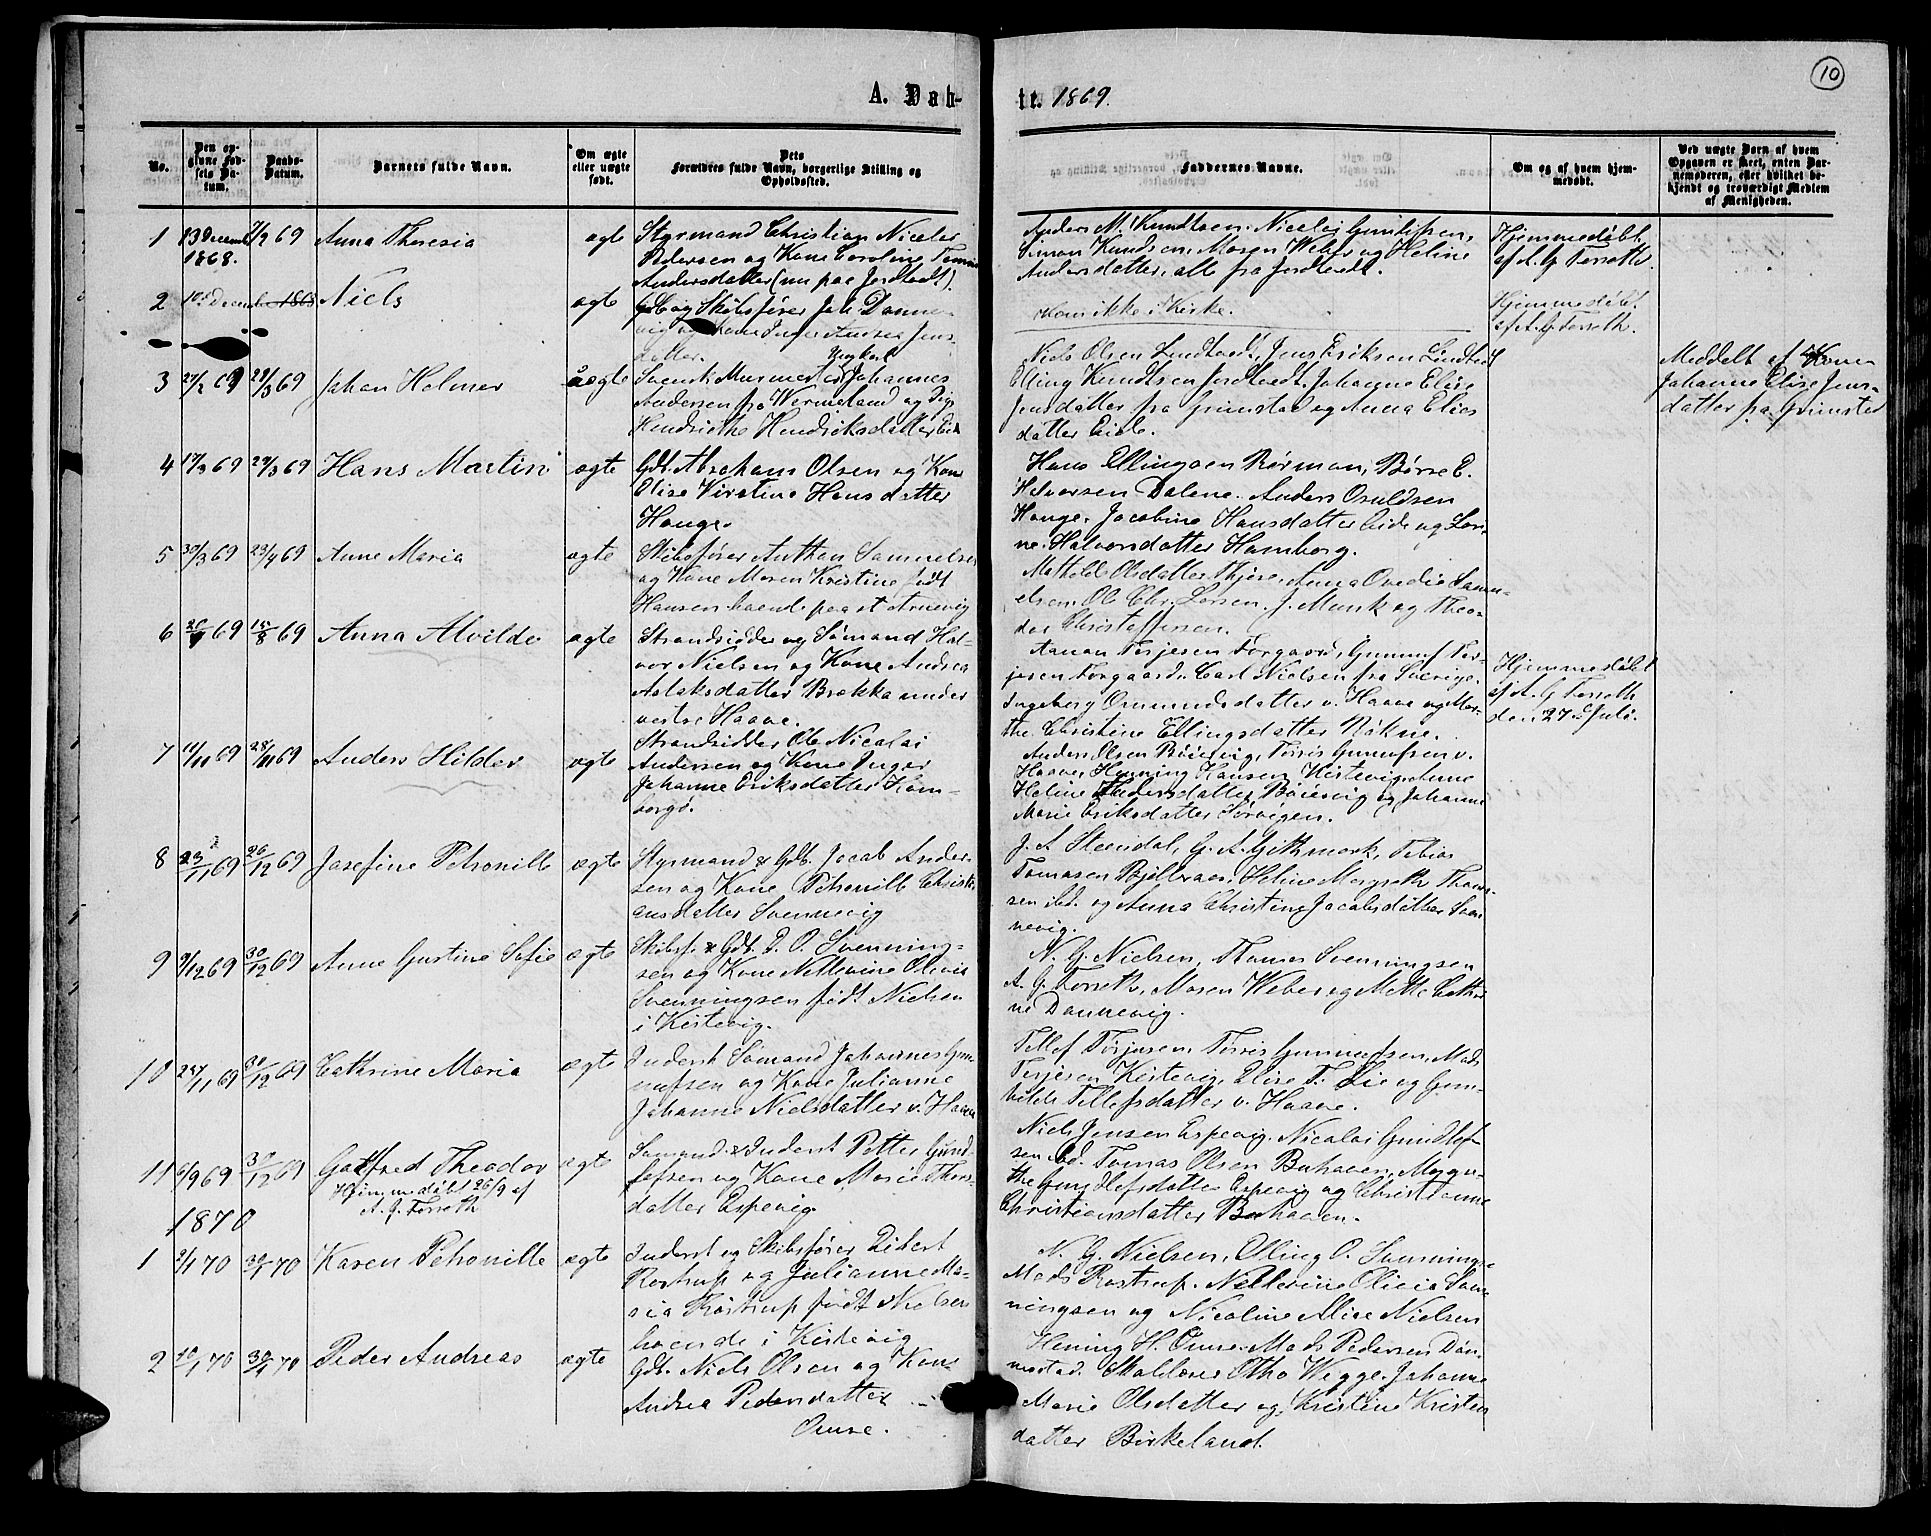 10
A. Dåb- tt. 1869.
No.
Den op-
givne Fød-
sels Da-
tum.
Daabs-
Datum.
Barnets fulde Navn.
Om ægte
eller uægte
født.
Dets
Forældres fulde Navn, borgerlige Stilling og
Opholdssted.
Faddernes Navne.
Om og af hvem hjem-
medøbt.
Ved uægte Barn af hvem
Opgaven er skeet, enten Bar-
nemoderen, eller hvilket be-
kjendt og troværdigt Medlem
af Menigheden.
1 13 Decemb 1868. 7/2 69 Anna Theresia ægte
Styrmand Christian Nicolai
Pedersen og Kone Caroline
Andersdatter (nu paa Jordtvedt).
Anders M. Knudtsen. Nicolai Gundersen,
Simon Knudsen, Maren Weber og Heline
Andersdatter, alle fra Jordtvedt.
Hjemmedøbt
af A. G. Torseth.
2 December 1868 Niels ægte
Gdb. og Skibsfører Joh. Danne-
vig og Kone Inger Andrea Jens-
datter.
ikke i Kirke.
Hjemmedøbt
af A. G. Torseth.
3 27/2 69 29/3 69 Johan Holmer uægte
Ungkarl
Svensk Murmester Johannes
Andersen fra Wermeland og Pige
Hendrikke Hendriksdatter Eide
Niels Olsen Lindtvedt, Jens Eriksen Lindtvedt
Elling Knudtsen Jordtvedt. Johanne Elise
Jensdatter fra Grimstad og Anna Elias
datter Eide.
Meddelt af Kone
Johanne Elise Jens-
datter fra Grimsted
4 17/3 69 29/3 69 Hans Martin ægte
Gdb. Abraham Olsen og Kone
Elise Kirstine Hansdatter
Hauge.
Hans Ellingsen Rørman, Børre E.
Halvorsen Dalene. Anders Osuldsen
Hauge. Jacobine Hansdatter Eide og Lov-
ne Halvorsdatter Hamborg.
5 30/3 69 23/4 69 Anne Maria ægte
Skibsfører Anthon Samuelsen
og Kone Maren Kristine født
Hansen boende paa st. Aruevig
Mathilde Olsdatter Thjøre, Anna Ovedie Samu-
elsen. Ole Chr. Larsen. J. Munk og Theo-
dor Christoffersen.
6 69 15/8 69 Anna Alvilde ægte
Strandsidder og Sømand Hal-
vor Nielsen og Kone Andrea
Aslaksdatter Brækka under
vestre Haave.
Aanon Terjesen Torgaard, Gunnuf Ter-
jesen Torgaard. Carl Nielsen fra Sverige.
Ingeborg Omundsdatter v. Haave og Mar-
the Christine Ellingsdatter Røkne.
Hjemmedøbt
af A. G. Torseth
den 27de Juli.
7 11/11 69 28/11 69 Anders Hilder ægte
Strandsidder Ole Nicolai
Andersen og Kone Inger
Johanne Eriksdatter Ham-
borgø.
Anders Olsen Bøievig, Torris Gunnufsen v.
Haave, Henning Hansen Kistevig, Anne
Heline Andersdatter Bøievig og Johanne
Marie Eriksdatter Sørvigen.
8 23/11 69 26/12 69 Josefine Petronille ægte
Styrmand & Gdb. Jacob Ander-
sen og Kone Petronille Christi-
ansdatter Svennevig
J. A. Steindal, G. A. Githmark, Tobias
Tomasen Bjellvaag, Heline Margrethe Thom-
sen ibd. og Anna Christine Jacobsdatter Sven-
nevig.
9 9/12 69 30/12 69 Anne Gustine Sofie ægte
Skibsf. & Gdb. P. O. Svenning-
sen og Kone Nellevine Olivia
Svenningsen født Nielsen
i Kistevig.
N. G. Nielsen, Thomas Svenningsen
A. G. Torseth, Maren Weber og Mette Cathri-
ne Dannevig.
10 25/11 69 30/12 69 Cathrine Maria ægte
Inderst Sømand Johannes Gun-
nufsen og Kone Julianne
Johanne Nielsdatter v. Haave
Tellef Terjesen, Torris Gunnufsen, Mads
Terjesen Kistevig, Elise T. Lie og Gun-
hilde Tellefsdatter v. Haave.
11 6/9 69 30/12 69 Gotfred Theodor ægte
Hjemmedøbt 26/9 af
A. G. Torseth
Sømand & Inderst Petter Gund-
lefsen og Kone Maria Thors-
datter Espevig.
Niels Jensen Espevig. Nicolai Gundlef-
sen ibd. Tomas Olsen Buhaven, Margre-
the Gundlefsdatter Espevig og Christianne
Christiansdatter Buhaven.
1870
1 9/1 70 30/1 70 Karen Petronille ægte
Inderst og Skibsfører Eilert
Rostrup og Julianne Ma-
ria Rostrup født Nielsen
boende i Kistevig
N. G. Nielsen, Elling O. Svennings-
Mads Rostrup. Nellevine Olivia Sven-
ningsen og Nicoline Alise Nielsen
2 10/1 70 30/1 70 Peder Andreas ægte
Gdb. Niels Olsen og Kone
Andrea Pedersdatter
Omre.
Hening H. Omre. Mads Pedersen Døn-
nestad. Skolelærer Otho Wigge. Johanne
Marie Olsdatter og Kristine Kristen
datter Birkeland.